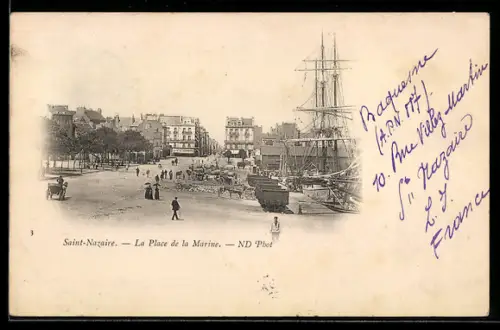 3
Saint-Nazaire. — La Place de la Marine. — ND Phot
Baquesne
10. Rue Villez Martin
St Nazaire
L. I.
France